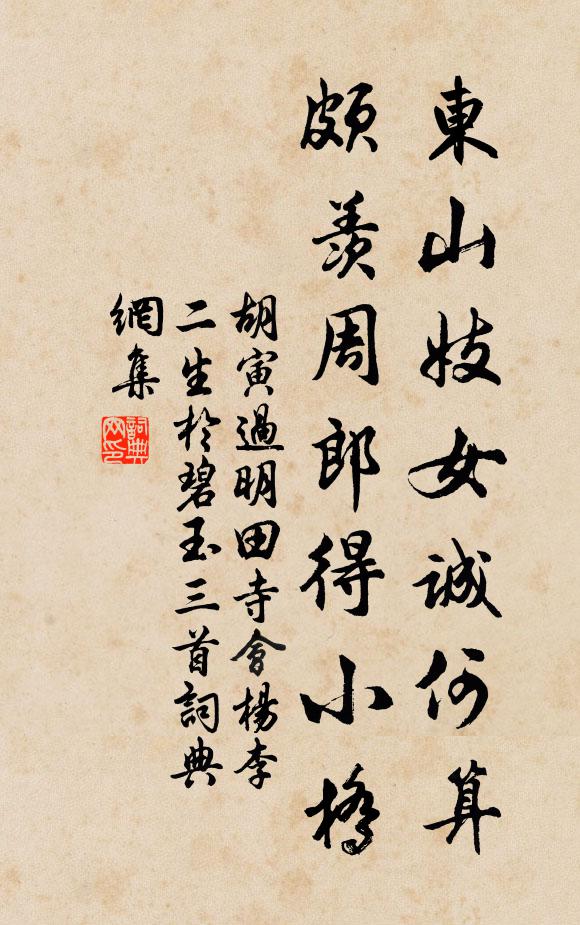 東山妓女誠何算
頗羨周郎得小橋
胡寅過明田寺會楊李
二生於碧玉三首詞典
網集
詞典
网印